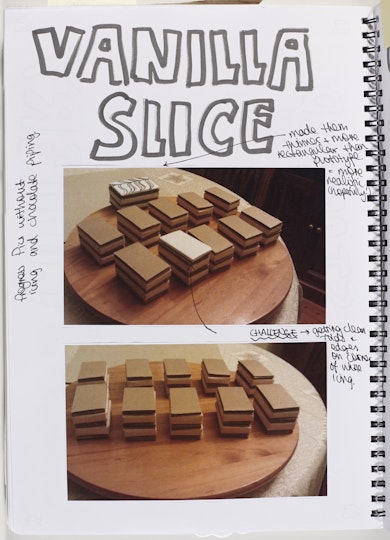 VANILLA
SLICE
made them
thinner + more
rectangular than
prototype
= more
realistic
(hopefully)
Progress Pics without
icing and chocolate piping
CHALLENGE → getting clean
edges
on
of
icing